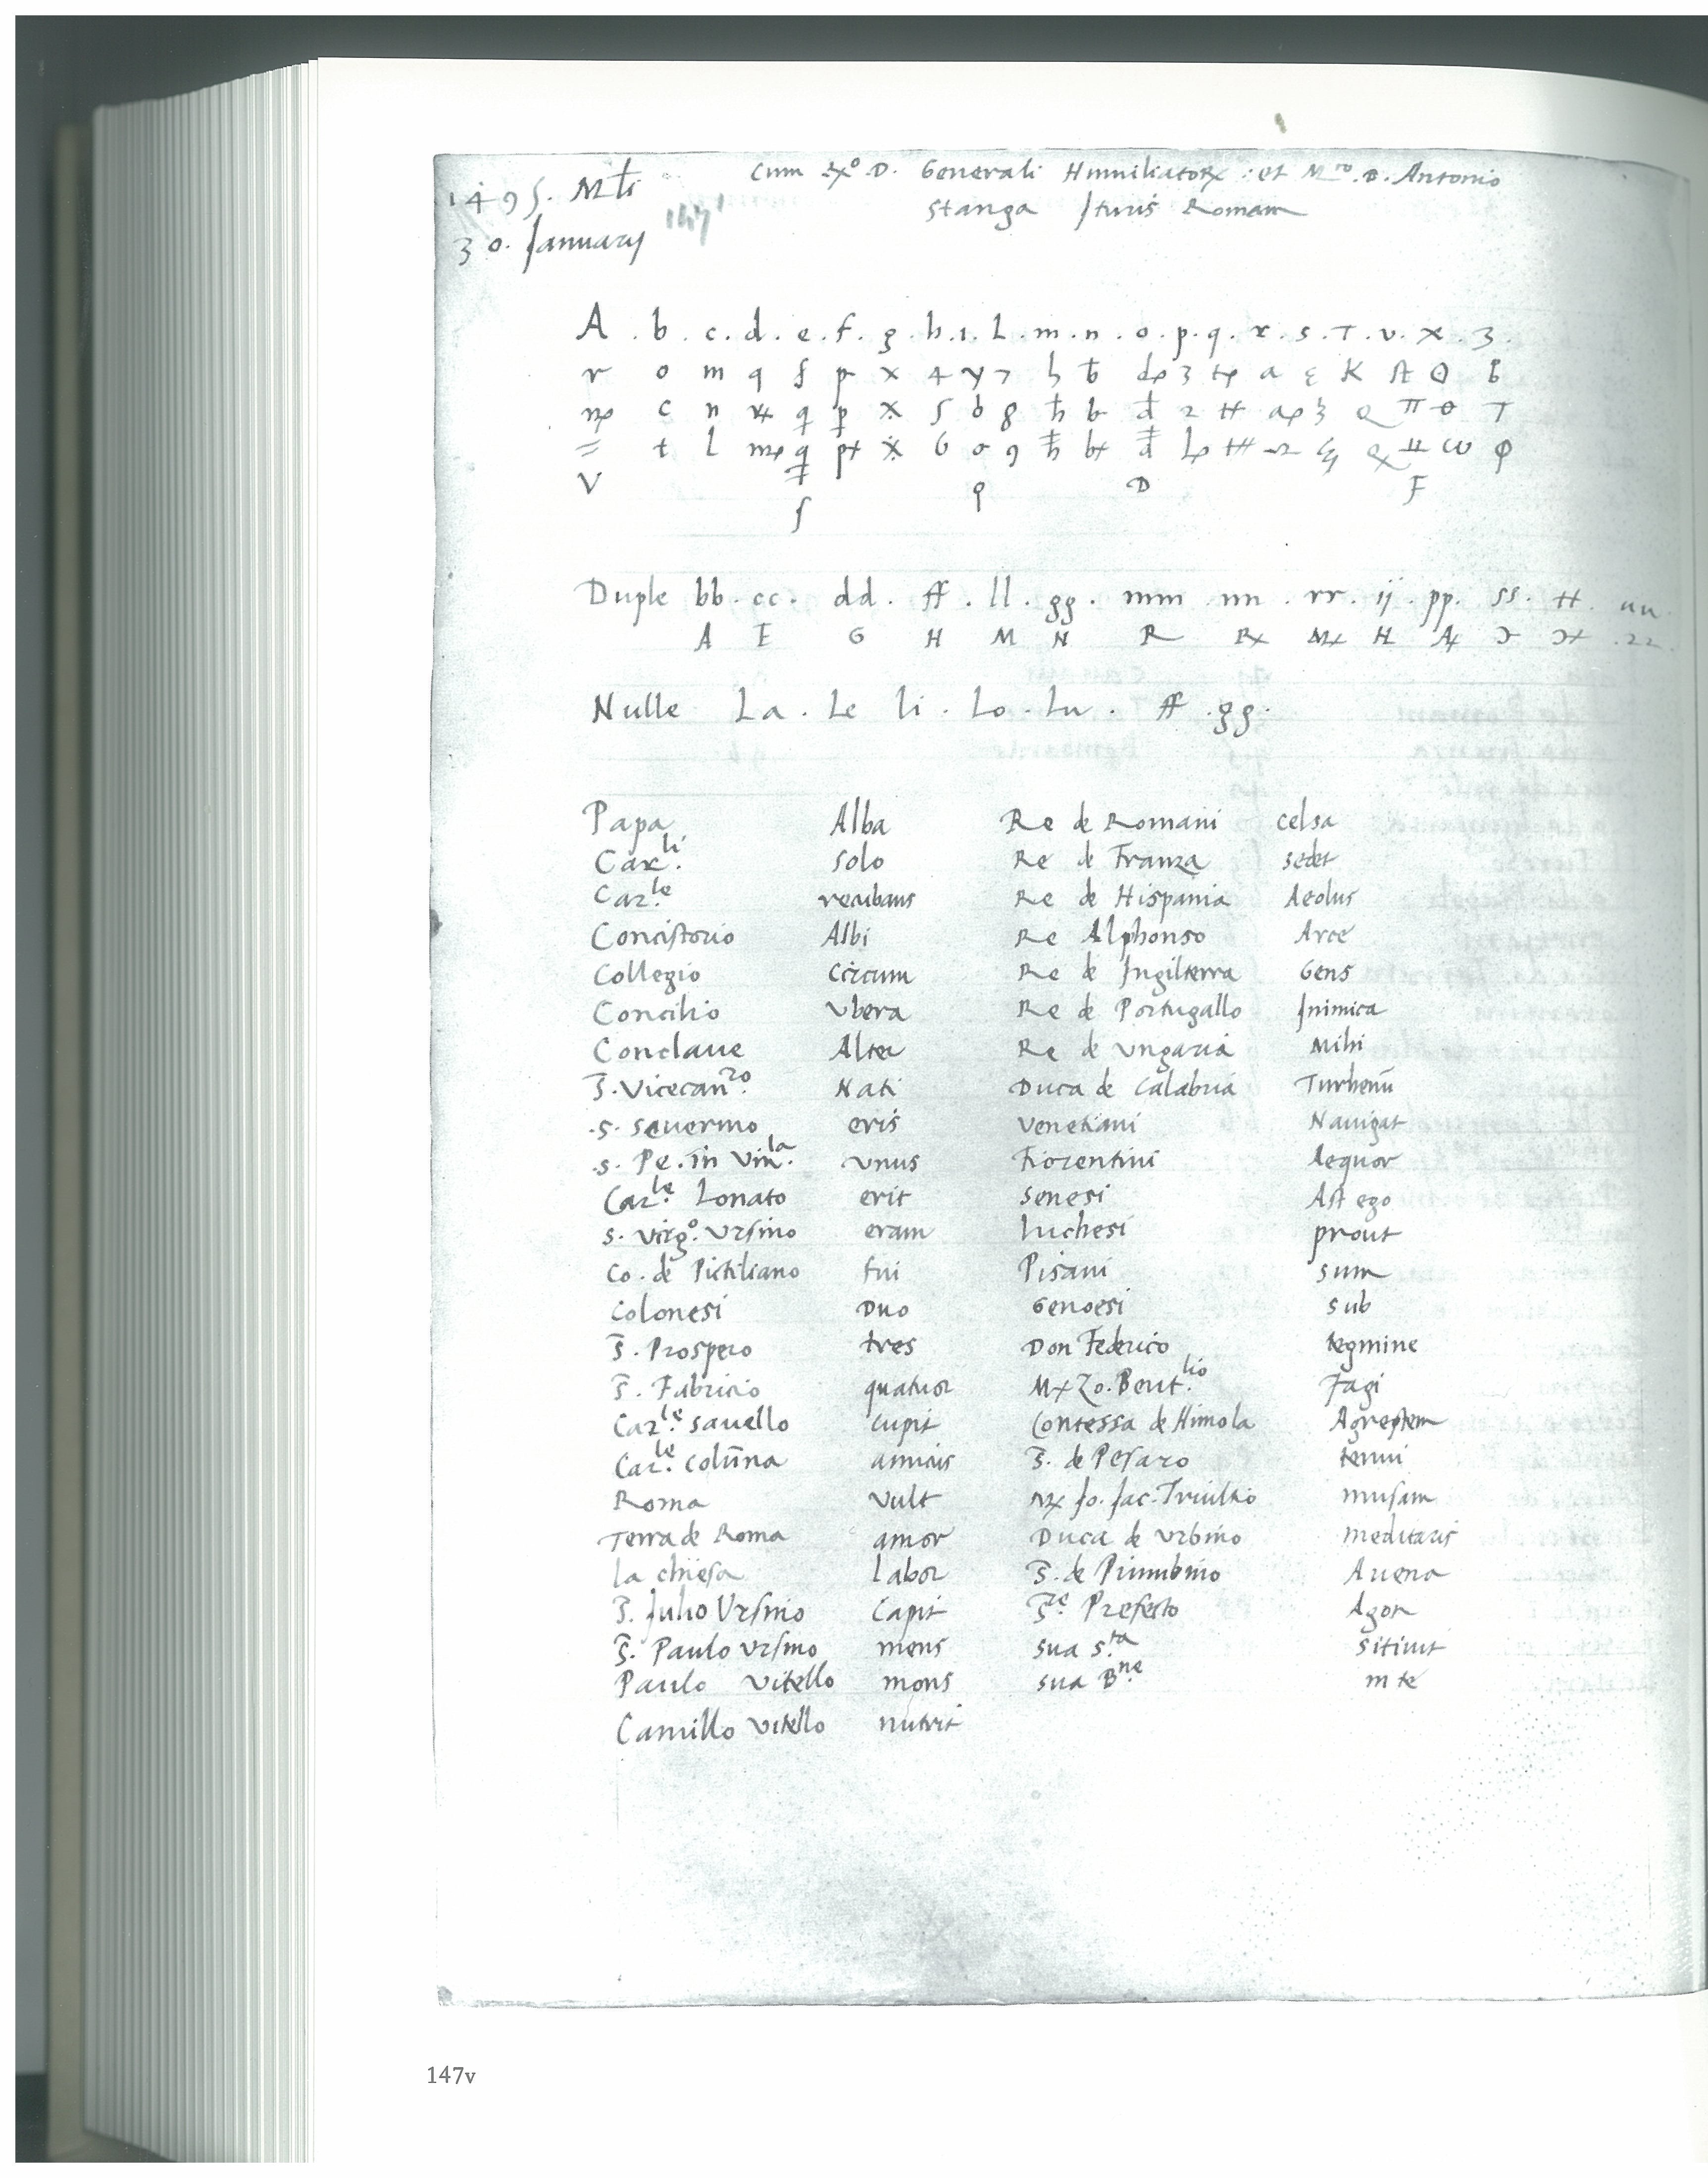 1495. Mli
30. January
147
Cum Rdo D. Generali Humiliatorum et Mro. D. Antonio
Stanga Ituris Romam
A . b . c . d . e . f . g . h . i . l . m . n . o . p . q . r . s . T . v . x . z .
r o m q f p x 4 y 7 h b 3 a ε K A O B
c n q p x 5 8 h b d 2 H Q π θ T
= t l q x 6 o 9 h b d H ω φ
V ʃ 9 D F
Duple bb . cc . dd . ff . ll . gg . mm . nn . rr . ij . pp . ss . tt . uu
A E G H M N R 22
Nulle La . Le li . Lo . Lu . ff . gg .
Papa Alba Re de Romani celsa
Car.li solo Re de Franza sedet
Car.le recubans Re de Hispania Aeolus
Concistorio Albi Re Alphonso Arce
Collegio Circum Re de Ingilterra Gens
Concilio Ubera Re de Portugallo Inimica
Conclaue Alter Re de Ungaria Mihi
S. Vicecan.ro Nati Duca de Calabria Turhenū
.S. Seuerino eris Venetiani Nauigat
.S. Pe. in Vin.la Unus Fiorentini Aequor
Car.le Lonato erit Senesi Ast ego
S. Virg.o Ursino eram Luchesi prout
Co. de Pictiliano fui Pisani sum
Colonesi Duo Genoesi sub
S. Prospero tres Don Federico tegmine
S. Fabricio quatuor Zo. Bent.lio Fagi
Car.le Sauello cupit Contessa de Himola Agrestem
Car.le Colūna amicus S. de Pesaro tenui
Roma Vult Jo. Jac. Triultio musam
Terra de Roma amor Duca de Urbino meditaris
la chiesa labor S. de Piumbino Auena
S. Julio Ursino Capit S.re Prefecto Agon
S. Paulo Ursino mens Sua S.ta sitiunt
Paulo Vitello mons Sua B.ne in te
Camillo Vitello nutrit
147v